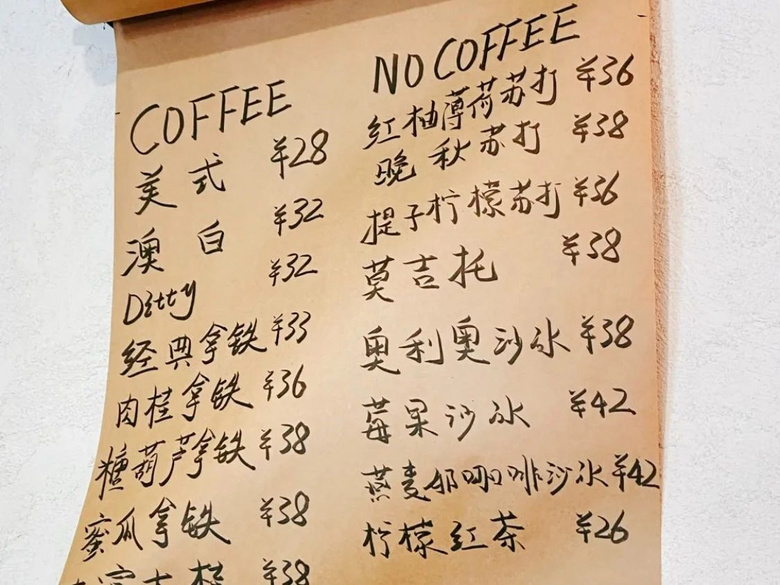 COFFEE
美式 ¥28
澳白 ¥32
Ditty ¥32
经典拿铁 ¥33
肉桂拿铁 ¥36
糖葫芦拿铁 ¥38
蜜瓜拿铁 ¥38
¥38
NO COFFEE
红柚薄荷苏打 ¥36
晚秋苏打 ¥38
提子柠檬苏打 ¥36
莫吉托 ¥38
奥利奥沙冰 ¥38
莓果沙冰 ¥42
燕麦奶咖啡沙冰 ¥42
柠檬红茶 ¥26